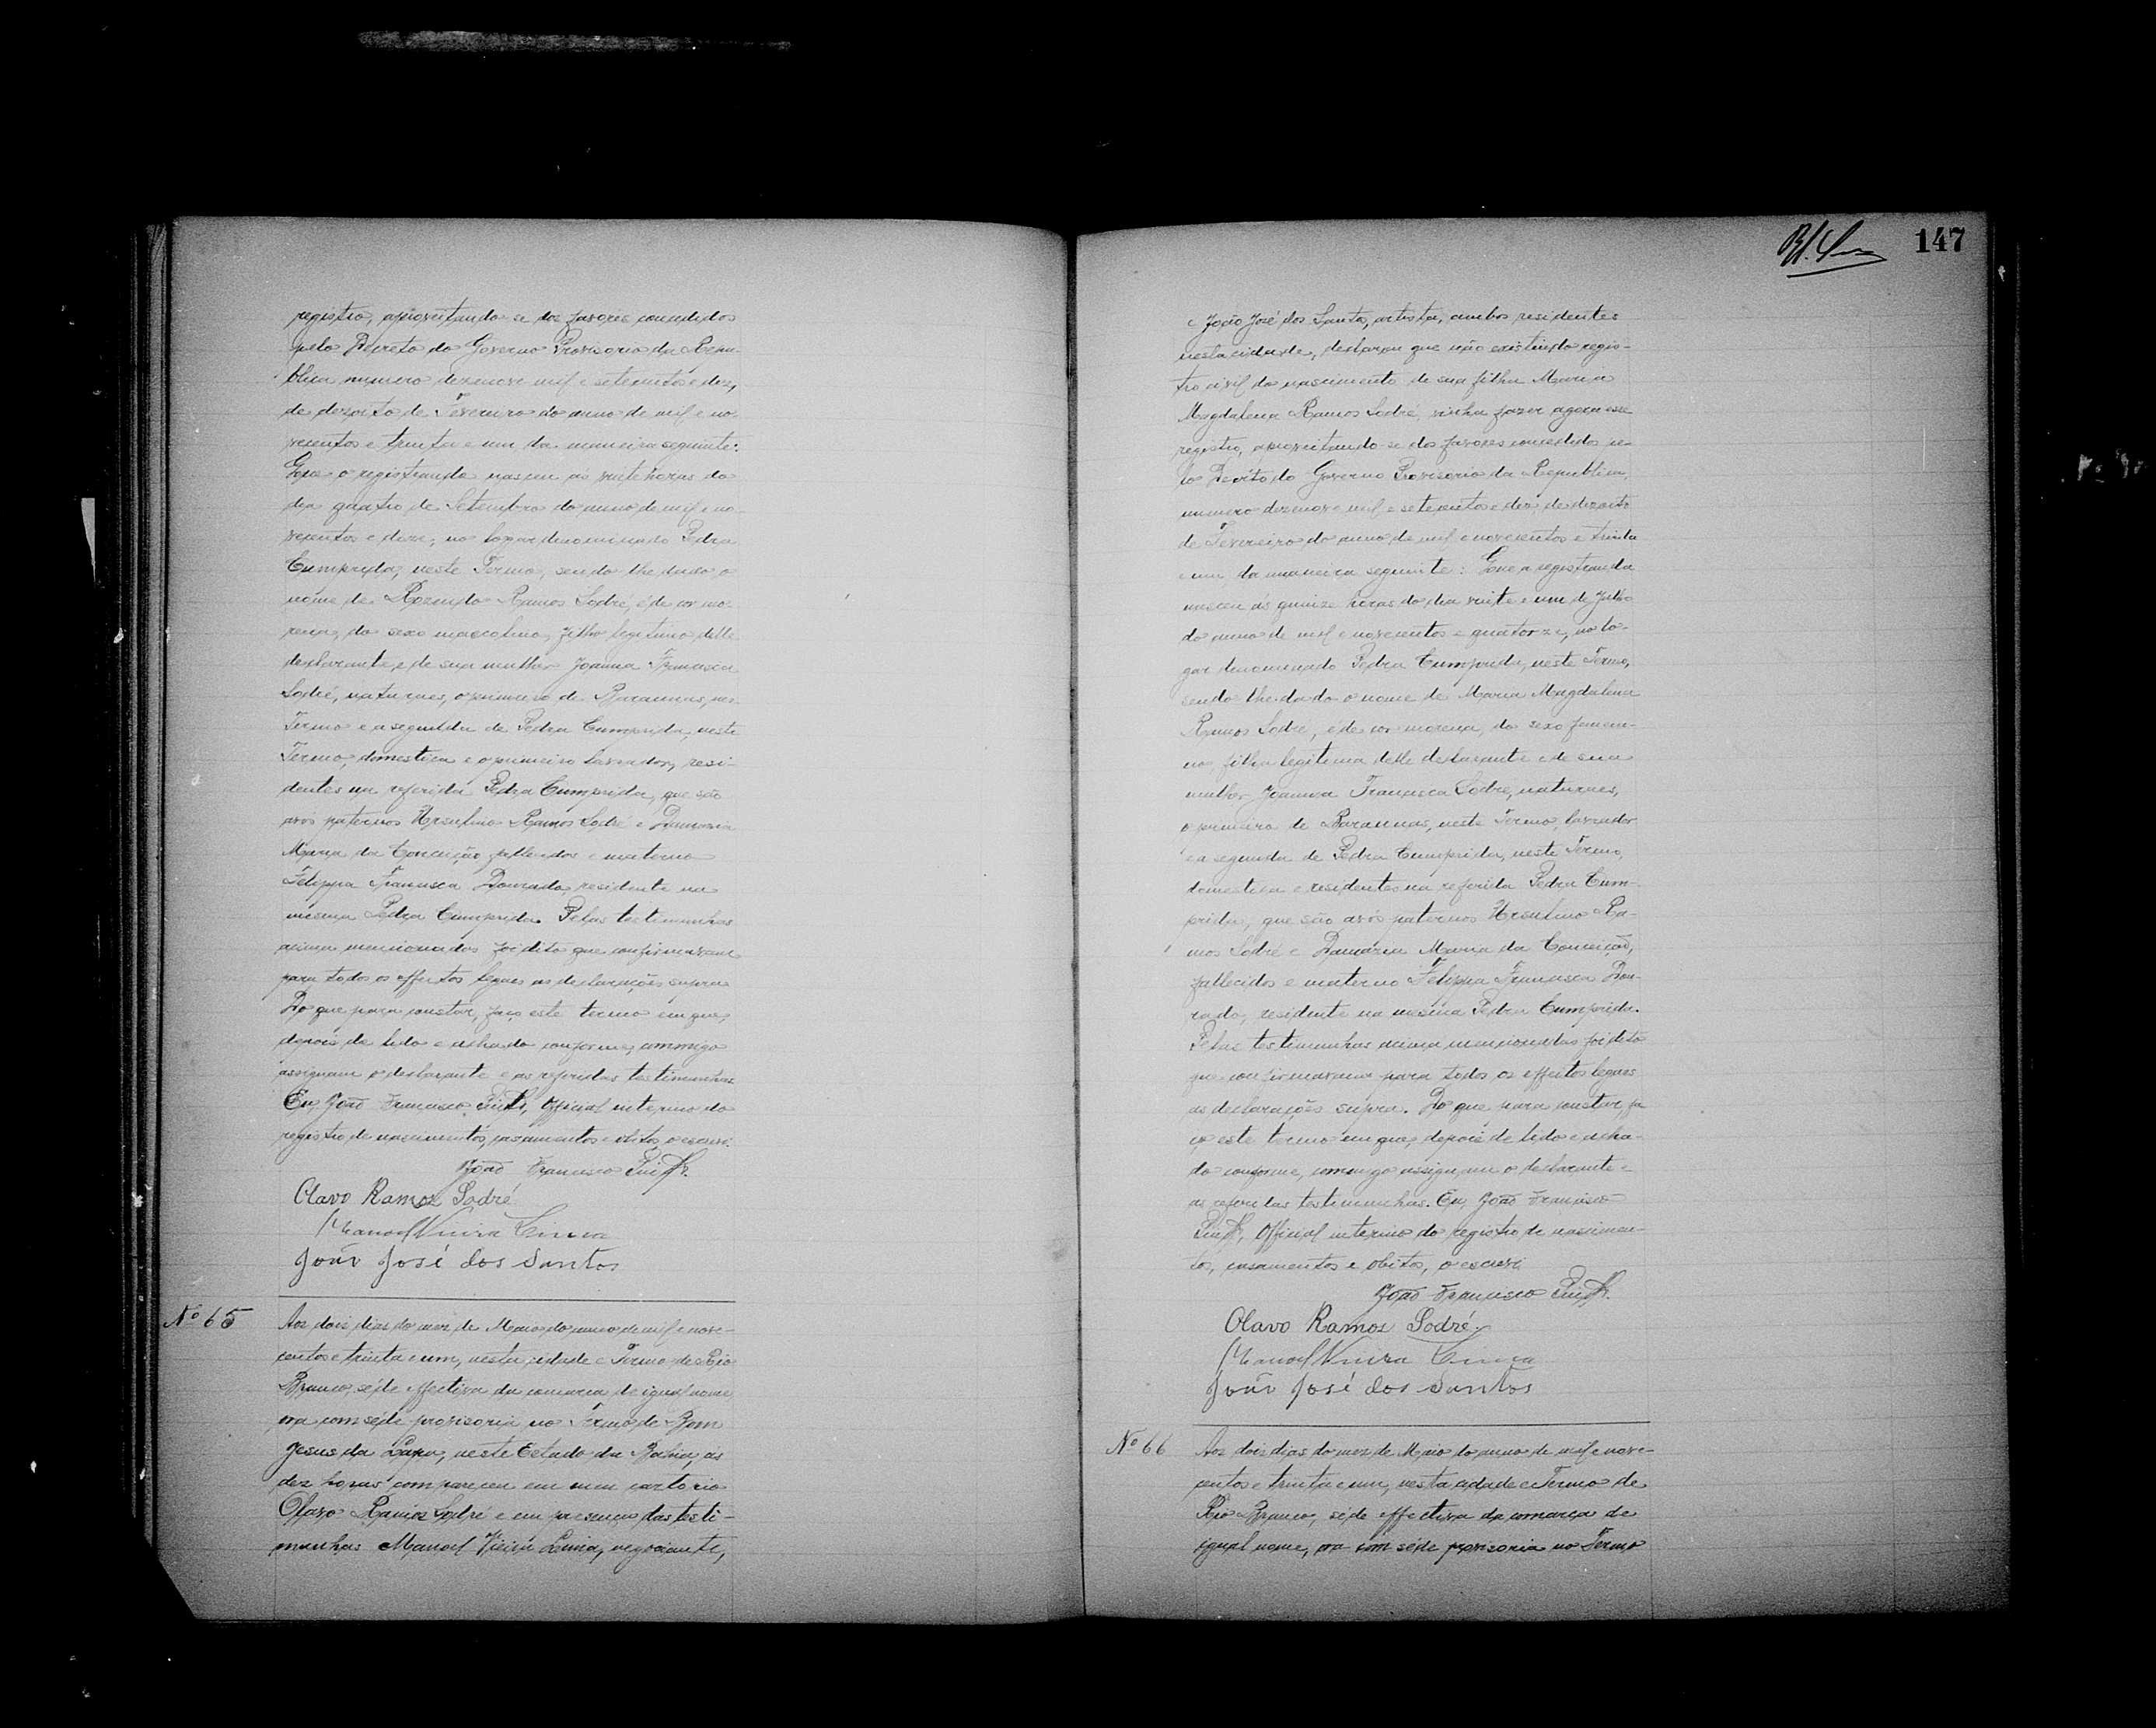 registro, aproveitando-se dos favores concedidos
pelo Decreto do Governo Provisorio da Repu-
blica numero dezenove mil e setecentos e dez,
de dezoito de Fevereiro do anno de mil e no-
vecentos e trinta e um da maneira seguinte:
Que o registrando nasceu ás vinte horas do
dia quatro de Setembro do anno de mil e no-
vecentos e doze, no logar denominado Pedra
Cumprida, neste Termo, sendo-lhe dado o
nome de Rozendo Ramos Sodré, é de cor mo-
rena, do sexo masculino, filho legitimo delle
declarante e de sua mulher Joanna Francisca
Sodré, naturaes, o primeiro de Baraunas, nes
Termo e a segunda de Pedra Cumprida, neste
Termo, domestica e o primeiro lavrador, resi-
dentes na referida Pedra Cumprida, que são
avos paternos Ursulino Ramos Sodré e Damazia
Maria da Conceição, fallecidos e materno
Felippa Francisca Dourado, residente na
mesma Pedra Cumprida. Pelas testimunhas
acima mencionadas foi dito que confirmavam
para todos os effeitos legaes as declarações supra
Do que para constar, faço este termo em que,
depois de lido e achado conforme, commigo
assignam o declarante e as referidas testimunhas
Eu, João Francisco, Official interino do
registro de nascimentos, casamentos e obitos, o escrevi.
João Francisco
Olavo Ramos Sodré
Manoel Vieira Lima
João José dos Santos
Nº 65
Aos dois dias do mez de Maio do anno de mil e nove-
centos e trinta e um, nesta cidade e Termo de Rio
Branco, séde effectiva da comarca de igual nome,
ora com séde provisoria no Termo de Bom
Jesus da Lapa, neste Estado da Bahia, ás
dez horas compareceu em meu cartorio
Olavo Ramos Sodré e em presença das testi-
munhas Manoel Vieira Lima, negociante,
147
e João José dos Santos, artista, ambos residentes
nesta cidade, declarou que não existindo regis-
tro civil do nascimento de sua filha Maria
Magdalena Ramos Sodré, vinha fazer agora esse
registro, aproveitando-se dos favores concedidos pe-
lo Decreto do Governo Provisorio da Republica,
numero dezenove mil e setecentos e dez, de dezoito
de Fevereiro do anno de mil e novecentos e trinta
e um da maneira seguinte: Que a registranda
nasceu ás quinze horas do dia vinte e um de Julho
do anno de mil e novecentos e quatorze, no lo-
gar denominado Pedra Cumprida, neste Termo,
sendo-lhe dado o nome de Maria Magdalena
Ramos Sodré, é de cor morena, do sexo femeni-
no, filha legitima delle declarante e de sua
mulher Joanna Francisca Sodré, naturaes,
o primeiro de Baraunas, neste Termo, lavrador
e a segunda de Pedra Cumprida, neste Termo,
domestica e residentes na referida Pedra Cum-
prida, que são avós paternos Ursulino Ra-
mos Sodré e Damazia Maria da Conceição,
fallecidos e materno Felippa Francisca Dou-
rado, residente na mesma Pedra Cumprida.
Pelas testimunhas acima mencionadas foi dito
que confirmavam para todos os effeitos legaes
as declarações supra. Do que para constar, fa
ço este termo em que, depois de lido e acha-
do conforme, commigo assignam o declarante e
as referidas testimunhas. Eu, João Francisco
Official interino do registro de nascimen-
tos, casamentos e obitos, o escrevi.
João Francisco
Olavo Ramos Sodré.
Manoel Vieira Lima
João José dos Santos
Nº 66
Aos dois dias do mez de Maio do anno de mil e nove-
centos e trinta e um, nesta cidade e Termo de
Rio Branco, séde effectiva da comarca de
igual nome, ora com séde provisoria no Termo